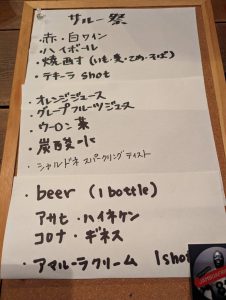 サルー祭
・赤・白ワイン
・ハイボール
・焼酎 (いも・麦・こめ・そば)
・テキーラ shot
・オレンジジュース
・グレープフルーツジュース
・ウーロン茶
・炭酸水
・シャルドネ スパークリングテイスト
・beer (1 bottle)
アサヒ・ハイネケン
コロナ・ギネス
・アマルーラクリーム 1shot